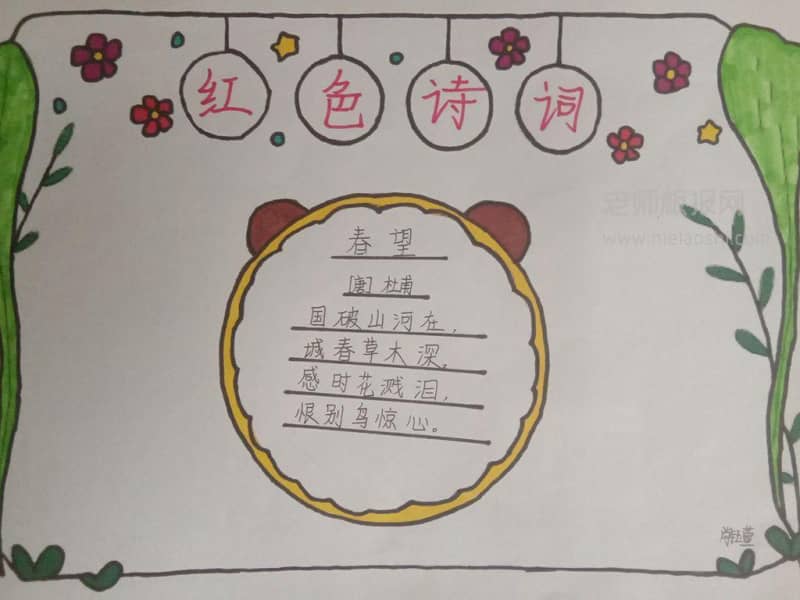 红色诗词
春望
[唐]杜甫
国破山河在,
城春草木深。
感时花溅泪,
恨别鸟惊心。
老师板报网